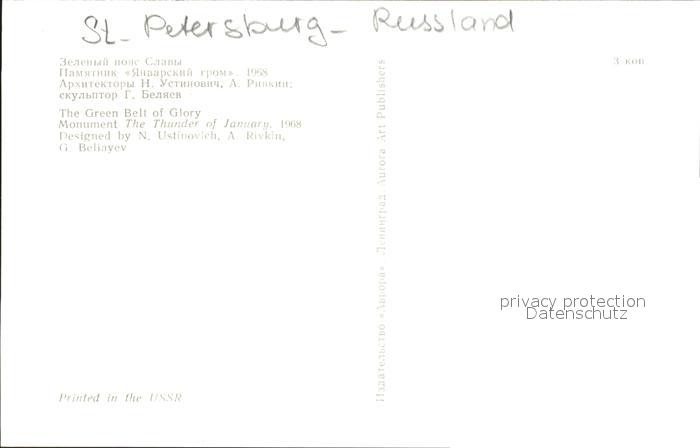 St. Petersburg - Russland
Зеленый пояс Славы
Памятник «Январский гром». 1968
Архитекторы Н. Устинович, А. Ривкин;
скульптор Г. Беляев
The Green Belt of Glory
Monument The Thunder of January. 1968
Designed by N. Ustinovich, A. Rivkin,
G. Beliayev
Printed in the USSR
Издательство «Аврора» Ленинград Aurora Art Publishers
3 коп
privacy protection
Datenschutz